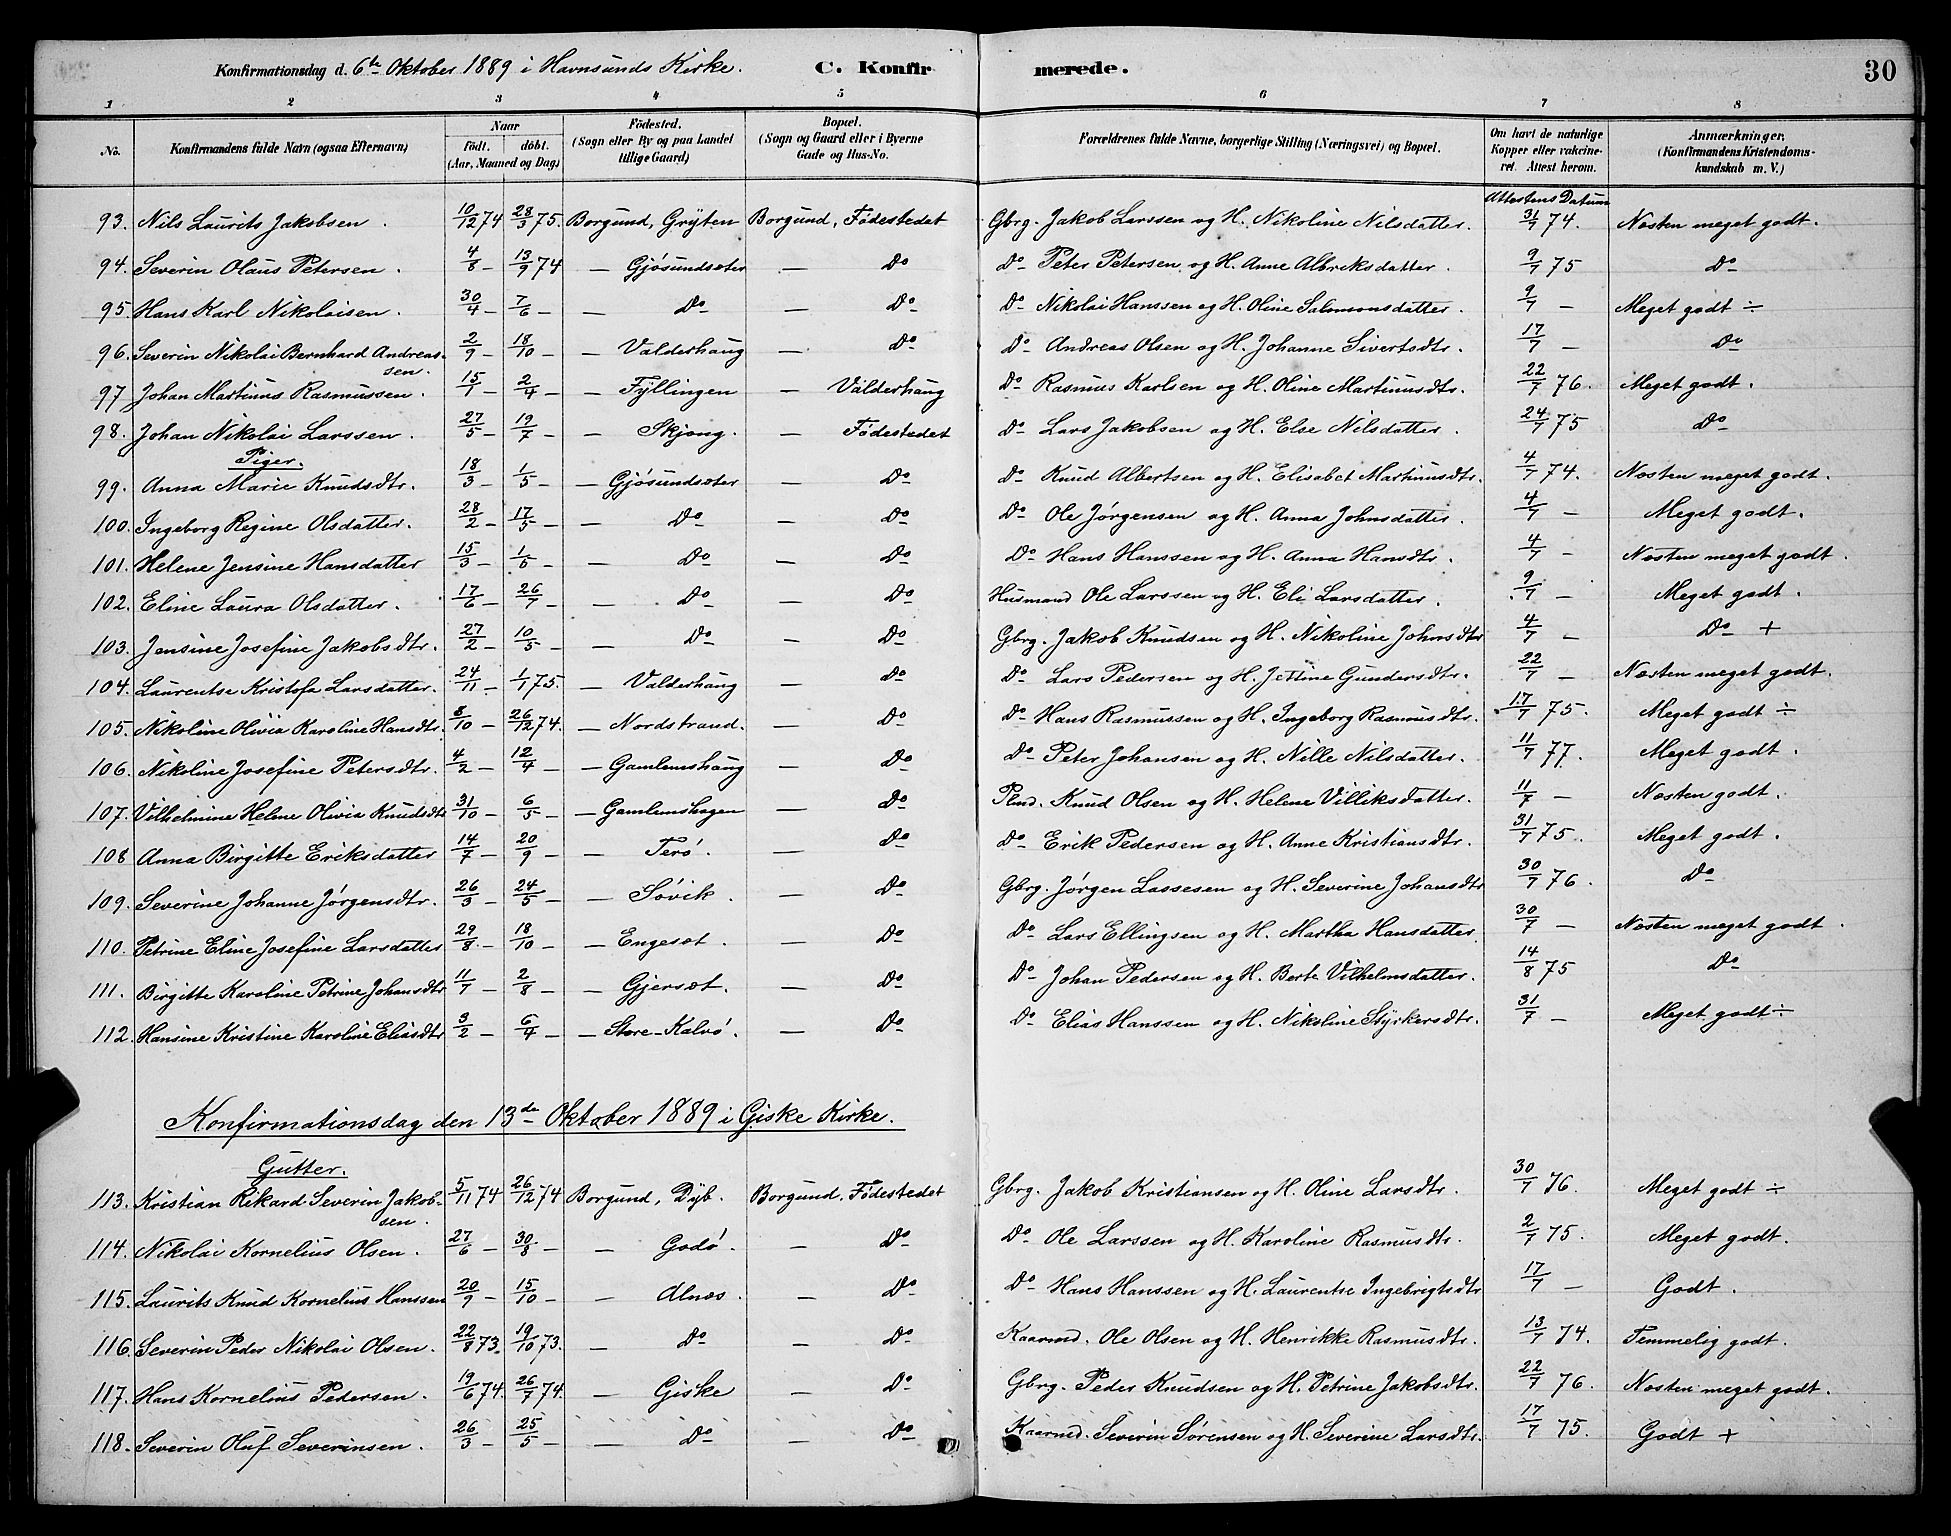 Konfirmationsdag d. 6te Oktober 1889 i Havnsunds Kirke. C. Konfirmerede. 30
1 2 3 4 5 6 7 8
No. Konfirmandens fulde Navn (ogsaa Efternavn) Naar födt. döbt. (Aar, Maaned og Dag) Födested. (Sogn eller By og paa Landet tillige Gaard) Bopæl. (Sogn og Gaard eller i Byerne Gade og Hus-No. Forældrenes fulde Navne, borgerlige Stilling (Næringsvei) og Bopæl. Om havt de naturlige Kopper eller vakcineret. Attest herom. Anmærkninger, (Konfirmandens Kristendomskundskab m. V.)
Attestens Datum
93. Nils Laurits Jakobsen. 10/12 74 28/3 75. Borgund, Grÿten Borgund, Födestedet Gbrg. Jakob Larssen og H. Nikoline Nilsdatter. 31/7 74. Næsten meget godt.
94. Severin Olaus Petersen. 4/8 – 13/9 74 – Gjósundsæter – Do Do Peter Petersen og H. Anne Albreksdatter. 9/7 75 Do
95. Hans Karl Nikolaisen. 30/4 – 7/6 – – Do – Do Do Nikolai Hanssen og H. Oline Salmonsdatter. 9/7 – Meget godt ÷
96. Severin Nikolai Bernhard Andreassen. 2/9 – 18/10 – – Valderhaug – Do Do Andreas Olsen og H. Johanne Sivertsdtr. 17/7 – Do
97 Johan Martinus Rasmussen. 15/1 – 2/4 – – Fÿllingen – Valderhaug Do Rasmus Karlsen og H. Oline Martinusdtr. 22/7 76. Meget godt.
98. Johan Nikolai Larssen. 27/5 – 19/7 – – Skjong. – Födestedet Do Lars Jakobsen og H. Else Nilsdatter. 24/7 75 Do
Piger.
99. Anna Marie Knudsdtr. 18/3 – 1/5 – – Gjósundsæter – Do Do Knud Albertsen og H. Elisabet Martinusdtr. 4/7 74. Næsten meget godt.
100. Ingeborg Regine Olsdatter. 28/2 – 17/5 – – Do – Do Do Ole Jørgensen og H. Anna Johnsdatter. 4/7 – Meget godt.
101. Helene Jensine Hansdatter 15/3 – 1/5 – – Do – Do Do Hans Hanssen og H. Anna Hansdtr. 4/7 – Næsten meget godt.
102. Eline Laura Olsdatter. 17/6 – 26/7 – – Do – Do Husmand Ole Larssen og H. Eli Larsdatter. 9/7 – Meget godt.
103. Jensine Josefine Jakobsdtr. 27/2 – 10/5 – – Do – Do Gbrg. Jakob Knudsen og H. Nikoline Johnsdtr 4/7 – Do +
104. Laurentse Kristofa Larsdatter. 24/11 – 1/1 75. – Valderhaug – Do Do Lars Pedersen og H. Jettine Gundersdtr. 22/7 – Næsten meget godt.
105. Nikoline Olivia Karoline Hansdtr. 8/10 – 26/12 74. – Nordstrand. – Do Do Hans Rasmussen og H. Ingeborg Rasmusdtr. 17/7 75. Meget godt ÷
106. Nikoline Josefine Petersdtr. 4/2 – 12/4 – – Gamlemshaug – Do Do Peter Johansen og H. Nille Nilsdatter. 11/7 77. Meget godt.
107. Vilhelmine Helene Olivia Knudsdtr 31/10 – 6/5 – – Gamlemshagen – Do Plmd. Knud Olsen og H. Helene Villiksdatter. 11/7 – Næsten godt.
108 Anna Birgitte Eriksdatter 14/7 – 20/9 – – Terö. – Do Do Erik Pedersen og H. Anne Kristiansdtr. 31/7 75. Meget godt.
109. Severine Johanne Jørgensdtr. 26/3 – 24/5 – – Sóvik. – Do Gbrg. Jørgen Lassesen og H. Severine Johansdtr 30/7 76. Do
110. Petrine Eline Josefine Larsdatter 29/8 – 18/10 – – Engeset. – Do Do Lars Ellingsen og H. Martha Hansdatter 30/7 – Næsten meget godt.
111. Birgitte Karoline Petrine Johansdtr 11/7 – 2/8 – – Gjerset. – Do Do Johan Pedersen og H. Berte Vilhelmsdatter. 14/8 75 Do
112. Hansine Kristine Karoline Eliasdtr 3/2 – 6/4 – – Store-Kalvó. – Do Do Elias Hanssen og H. Nikoline Stÿrkersdtr. 31/7 – Meget godt ÷
Konfirmationsdag den 13de Oktober 1889 i Giske Kirke.
Gutter.
113. Kristian Rikard Severin Jakobsen. 5/11 74 26/12 74 Borgund, Dÿb. Borgund, Födestedet Gbrg. Jakob Kristiansen og H. Oline Larsdtr. 30/7 76. Meget godt ÷
114. Nikolai Kornelius Olsen. 27/6 – 30/8 – – Godó. – Do Do Ole Larssen og H. Karoline Rasmusdtr. 2/7 75. Meget godt.
115. Laurits Knud Kornelius Hanssen 20/9 – 15/10 – – Alnæs. – Do Do Hans Hanssen og H. Laurentse Ingebrigtsdtr 17/7 – Godt.
116. Severin Peder Nikolai Olsen. 22/8 73. 19/10 73. – Do – Do Kaarmd. Ole Olsen og H. Henrikke Rasmusdtr. 13/7 74. Temmelig godt.
117. Hans Kornelius Pedersen. 19/6 74. 26/7 74. – Giske – Do Gbrg. Peder Knudsen og H. Petrine Jakobsdtr. 22/7 76. Næsten meget godt.
118. Severin Oluf Severinsen. 26/3 – 25/5 – – Do – Do Kaarmd. Severin Sørensen og H. Severine Larsdtr. 17/7 75. Godt +